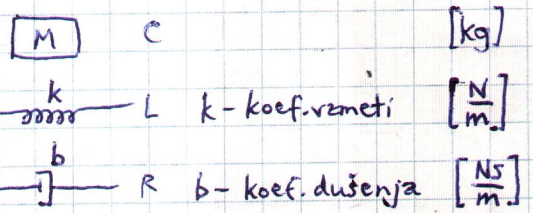 M C [kg]
k L k - koef. vzmeti [N/m]
b R b - koef. dušenja [Ns/m]